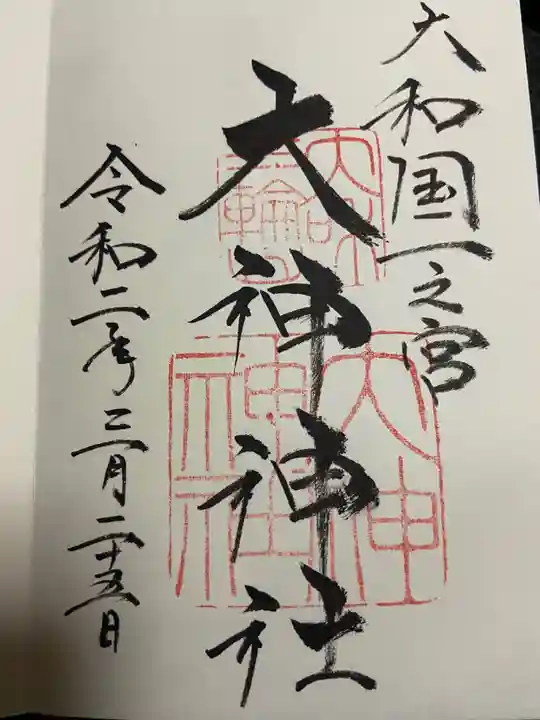 大和国一之宮
大神神社
令和二年三月二十五日
大神
神社